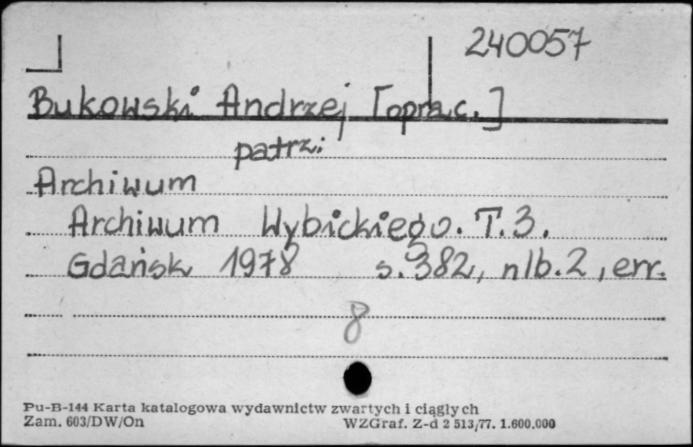 240057
Bukowski Andrzej [oprac.]
patrz:
Archiwum
Archiwum Wybickiego. T.3.
Gdańsk 1978 s.382, nlb.2, err.
8
Pu-B-144 Karta katalogowa wydawnictw zwartych i ciągłych
Zam. 603/DW/On WZGraf. Z-d 2 513/77. 1.600.000